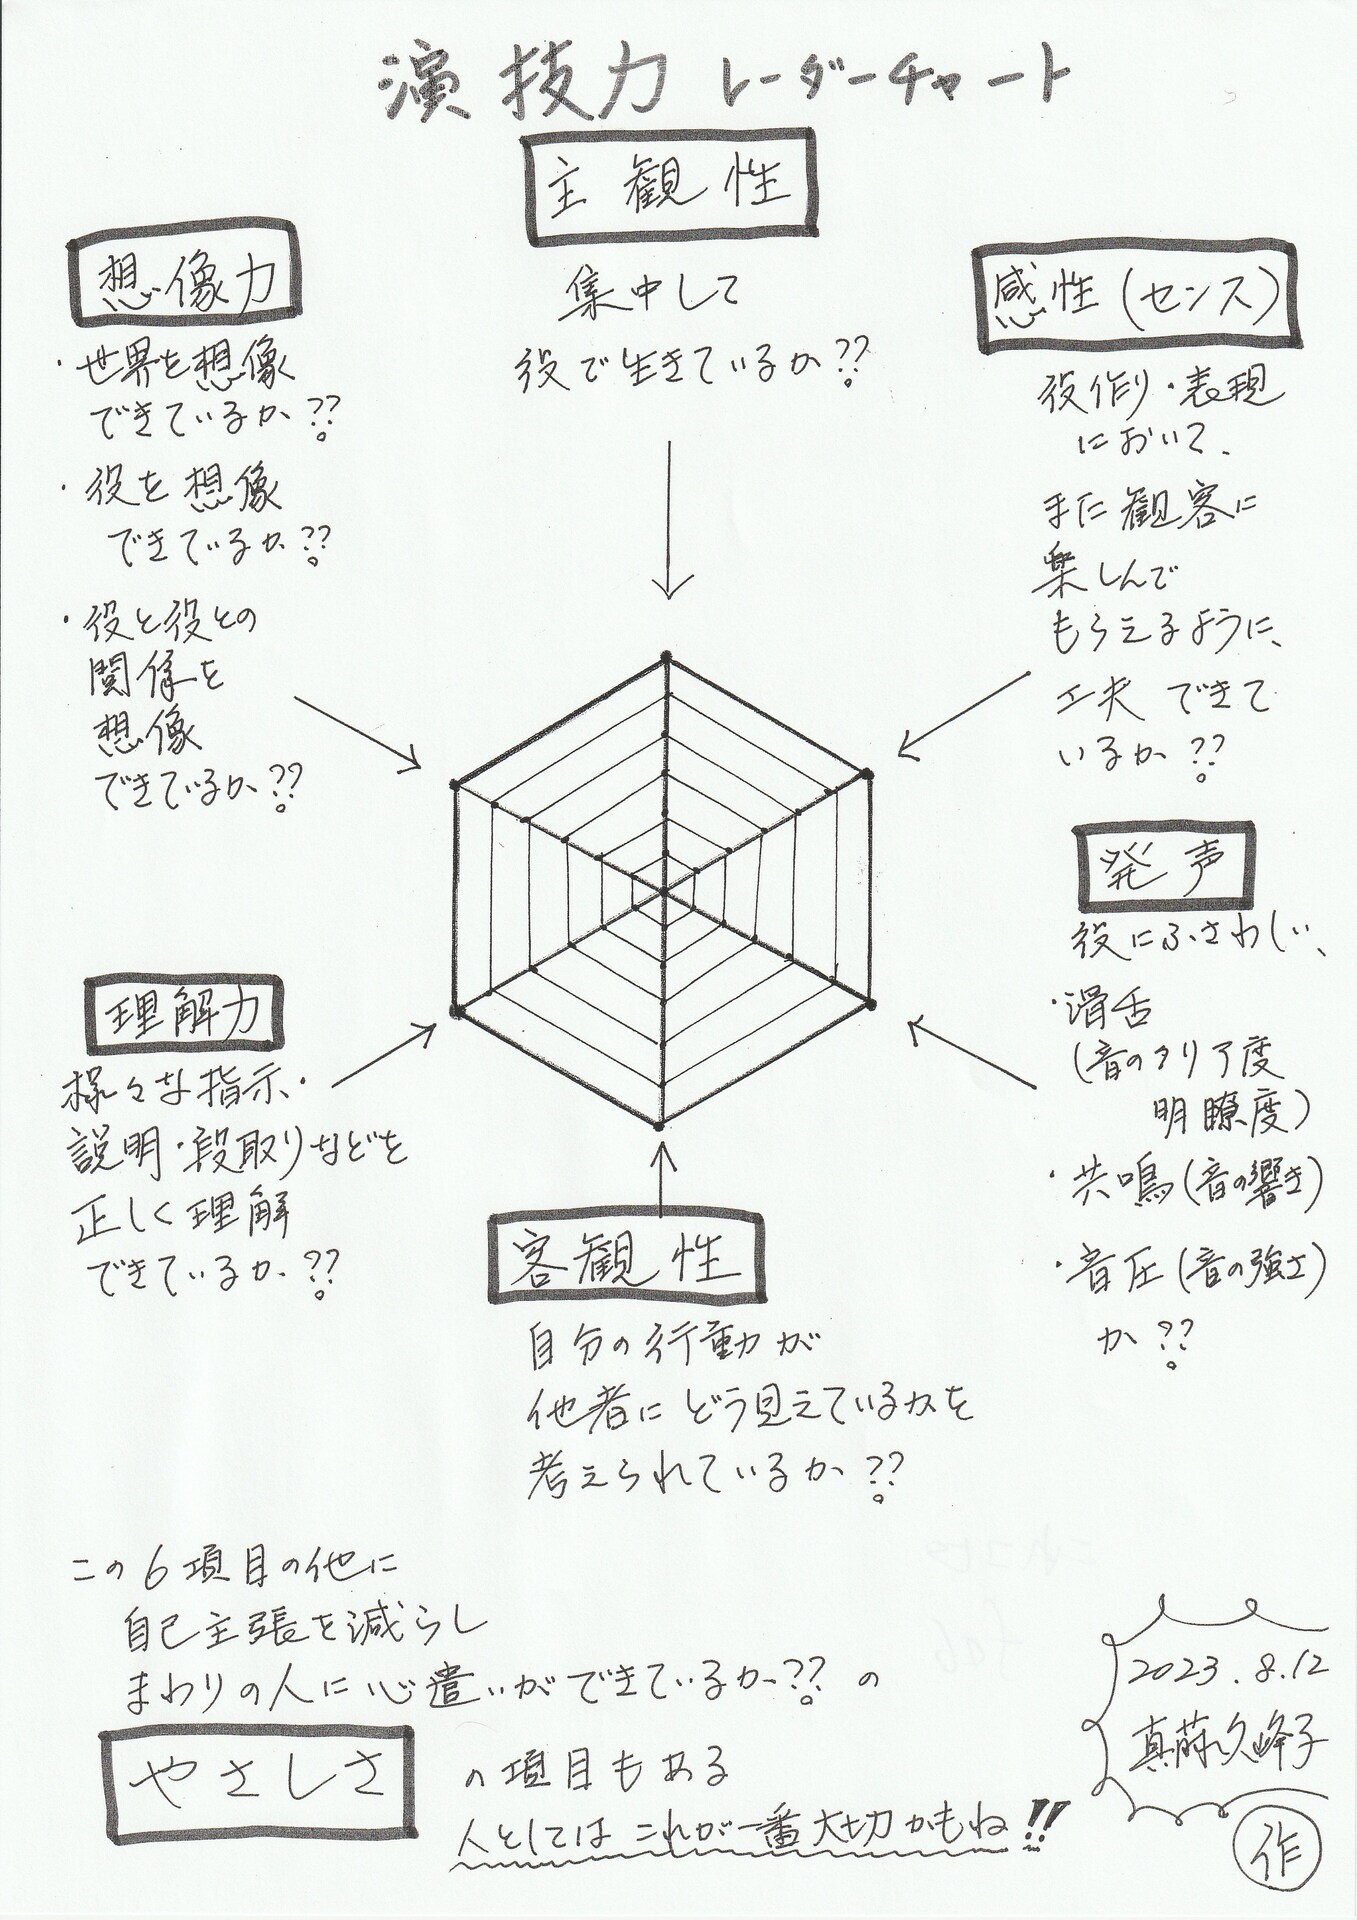 演技力レーダーチャート
主観性
集中して
役で生きているか??
想像力
・世界を想像
できているか??
・役を想像
できているか??
・役と役との
関係を
想像
できているか??
感性(センス)
役作り・表現
において、
また観客に
楽しんで
もらえるように、
工夫できて
いるか??
発声
役にふさわしい、
・滑舌
(音のクリア度
明瞭度)
・共鳴(音の響き)
・音圧(音の強さ)
か??
理解力
様々な指示・
説明・段取りなどを
正しく理解
できているか??
客観性
自分の行動が
他者にどう見えているかを
考えられているか??
この6項目の他に
自己主張を減らし
まわりの人に心遣いができているか??の
やさしさ の項目もある
人としてはこれが一番大切かもね!!
2023.8.12
真藤久峰子
作